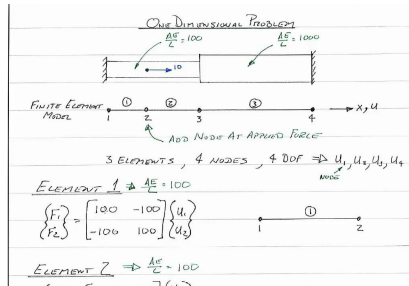 ONE DIMENSIONAL PROBLEM
AE/L = 100 AE/L = 1000
10
FINITE ELEMENT MODEL ① ② ③ x, u
1 2 3 4
ADD NODE AT APPLIED FORCE
3 ELEMENTS, 4 NODES, 4 DOF ⇒ U1, U2, U3, U4
NODE
ELEMENT 1 ⇒ AE/L = 100
{F1 F2} = [100 -100 -100 100] {U1 U2}
①
1 2
ELEMENT 2 ⇒ AE/L = 100